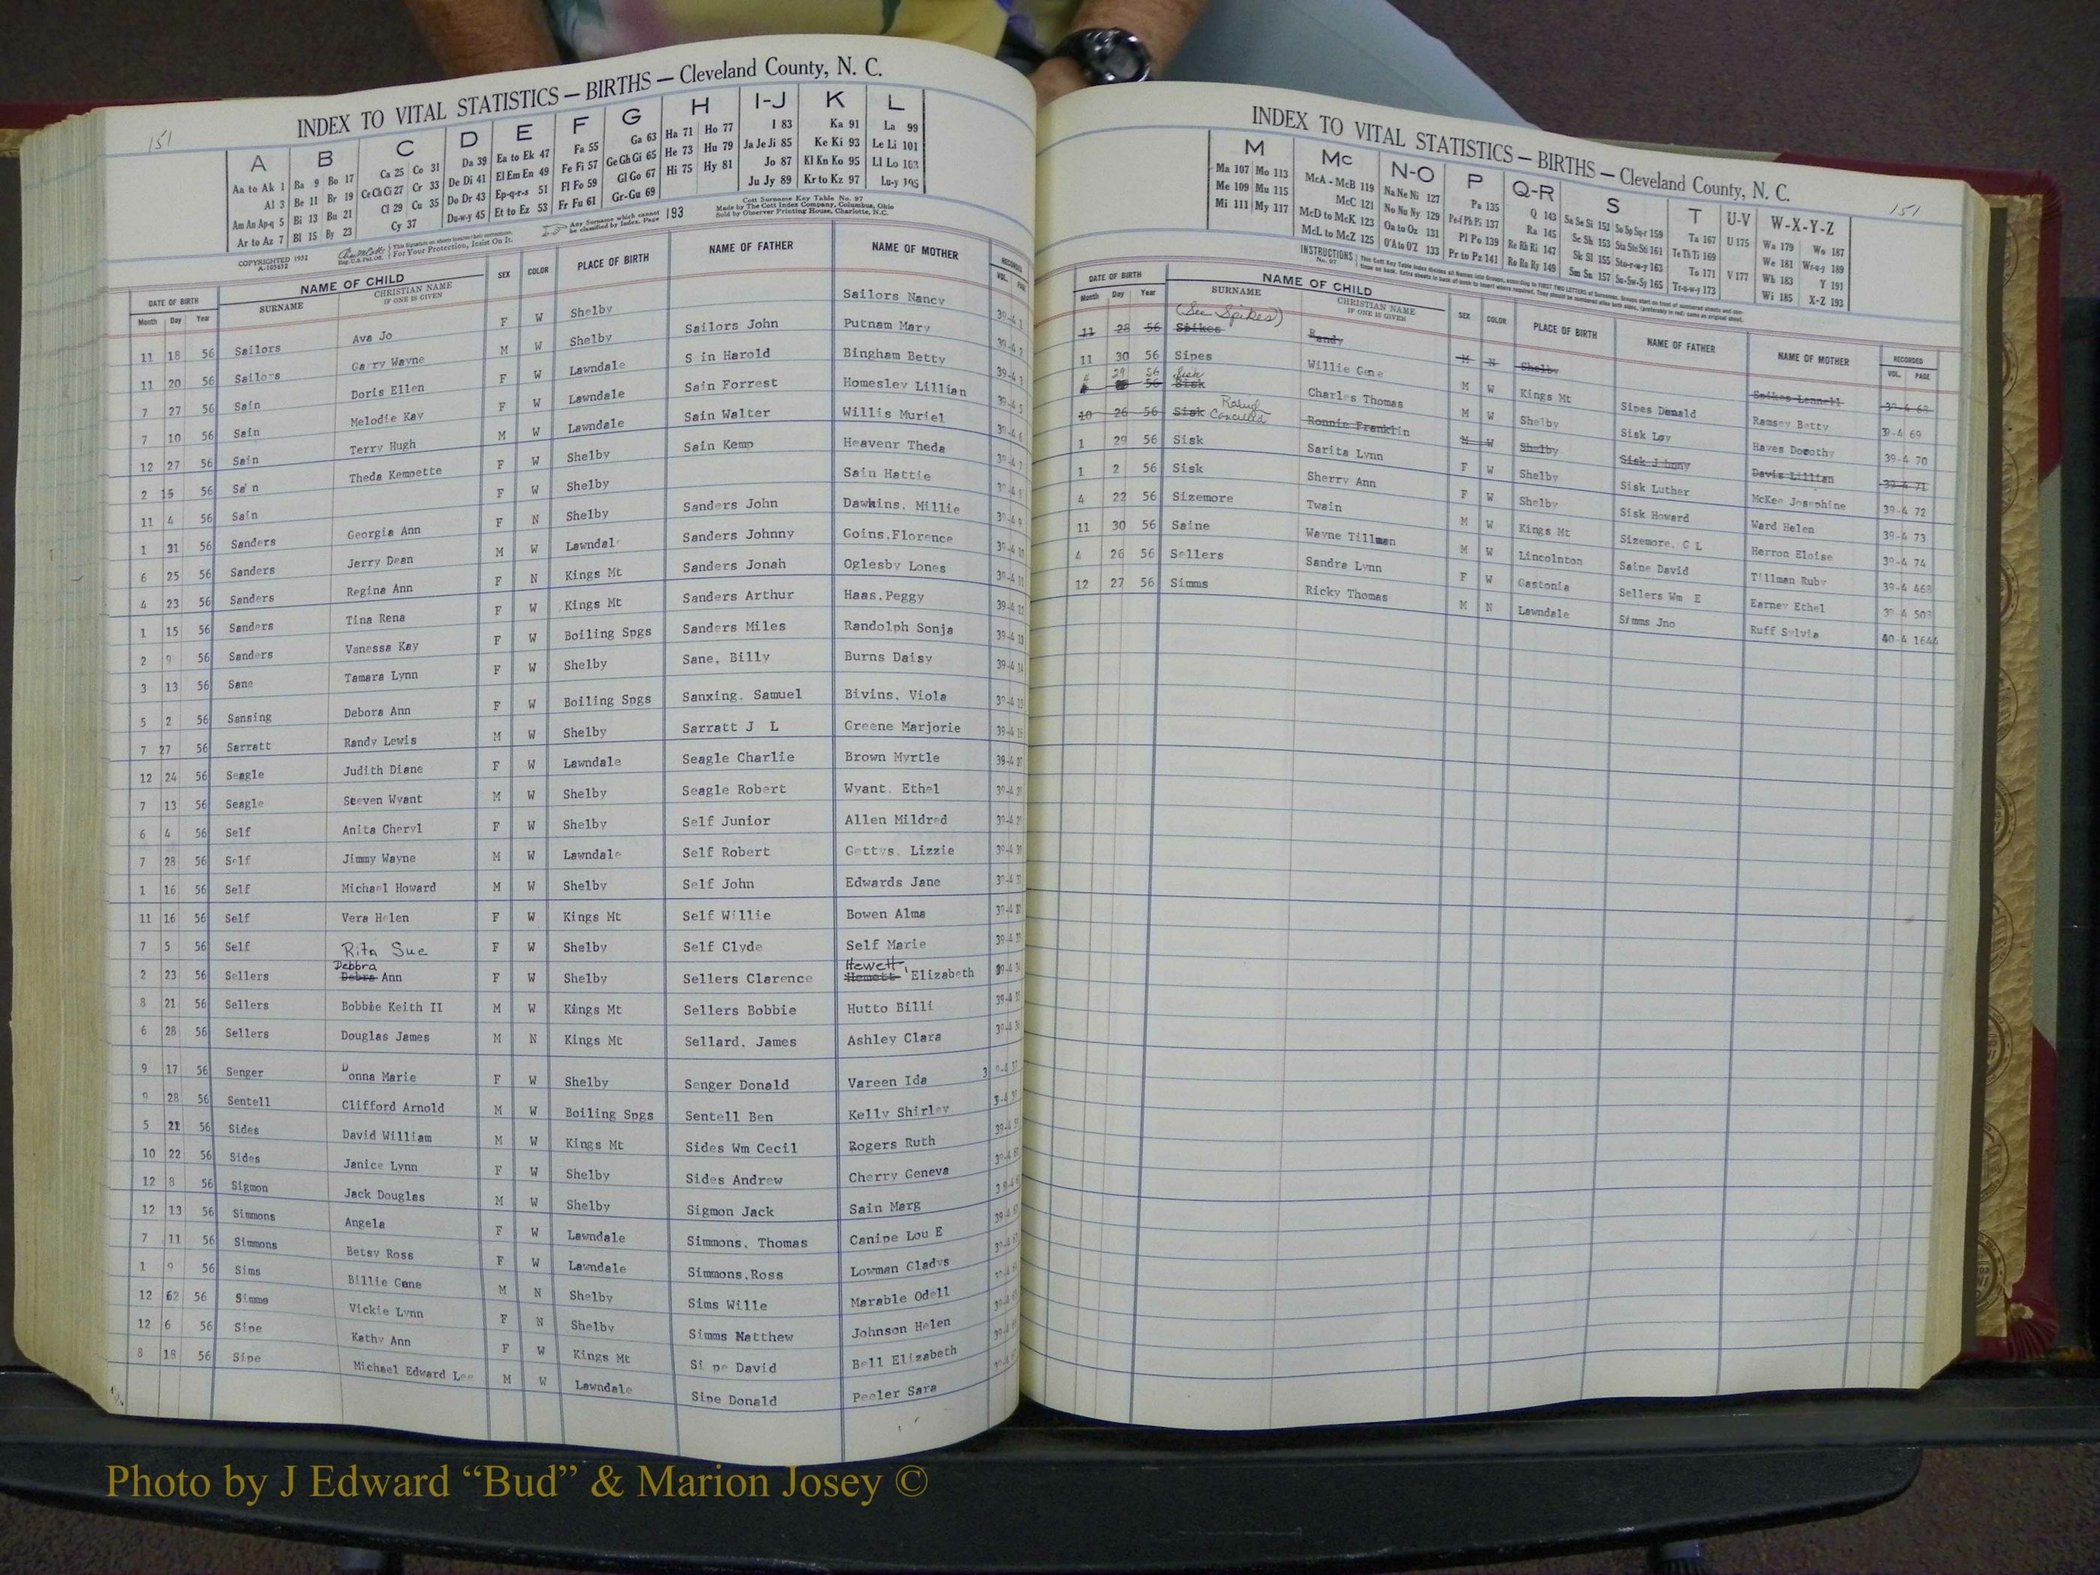 151
INDEX TO VITAL STATISTICS — BIRTHS — Cleveland County, N. C.
A B C D E F G H I-J K L
Aa to Ak 1 Ba 9 Bo 17 Ca 25 Co 31 Da 39 Ea to Ek 47 Fa 55 Ga 63 Ha 71 Ho 77 I 83 Ka 91 La 99
Al 3 Be 11 Br 19 Ce Ch Ci 27 Cr 33 De Di 41 El Em En 49 Fe Fi 57 Ge Gh Gi 65 He 73 Hu 79 Ja Je Ji 85 Ke Ki 93 Le Li 101
Am An Ap-q 5 Bi 13 Bu 21 Cl 29 Cu 35 Do Dr 43 Ep-q-r-s 51 Fl Fo 59 Gl Go 67 Hi 75 Hy 81 Jo 87 Kl Kn Ko 95 Ll Lo 103
Ar to Az 7 Bl 15 By 23 Cy 37 Du-w-y 45 Et to Ez 53 Fr Fu 61 Gr-Gu 69 Ju Jy 89 Kr to Kz 97 Lu-y 105
COPYRIGHTED 1932
A-103632
For Your Protection, Insist On It.
Any Surname which cannot be classified by Index. Page 193
Cott Surname Key Table No. 97
Made by The Cott Index Company, Columbus, Ohio
Sold by Observer Printing House, Charlotte, N.C.
DATE OF BIRTH NAME OF CHILD SEX COLOR PLACE OF BIRTH NAME OF FATHER NAME OF MOTHER RECORDED
Month Day Year SURNAME CHRISTIAN NAME IF ONE IS GIVEN VOL. PAGE
11 18 56 Sailors Ava Jo F W Shelby Sailors Nancy 39-4 1
11 20 56 Sailors Garry Wayne M W Shelby Sailors John Putnam Mary 39-4 2
7 27 56 Sain Doris Ellen F W Lawndale S in Harold Bingham Betty 39-4 3
7 10 56 Sain Melodie Kay F W Lawndale Sain Forrest Homesley Lillian 39-4 5
12 27 56 Sain Terry Hugh M W Lawndale Sain Walter Willis Muriel 39-4 6
2 15 56 Sain Theda Kempette F W Shelby Sain Kemp Heavenr Theda 39-4 7
11 4 56 Sain F W Shelby Sain Hattie
1 31 56 Sanders Georgia Ann F N Shelby Sanders John Dawkins, Millie 39-4 9
6 25 56 Sanders Jerry Dean M W Lawndale Sanders Johnny Goins,Florence 39-4 10
4 23 56 Sanders Regina Ann F N Kings Mt Sanders Jonah Oglesby Lones 39-4 11
1 15 56 Sanders Tina Rena F W Kings Mt Sanders Arthur Haas,Peggy 39-4 12
2 9 56 Sanders Vanessa Kay F W Boiling Spgs Sanders Miles Randolph Sonja 39-4 13
3 13 56 Sane Tamara Lynn F W Shelby Sane, Billy Burns Daisy 39-4 14
5 2 56 Sansing Debora Ann F W Boiling Spgs Sanxing, Samuel Bivins, Viola 39-4
7 27 56 Sarratt Randy Lewis M W Shelby Sarratt J L Greene Marjorie 39-4
12 24 56 Seagle Judith Diane F W Lawndale Seagle Charlie Brown Myrtle 39-4
7 13 56 Seagle Steven Wyant M W Shelby Seagle Robert Wyant, Ethel 39-4
6 4 56 Self Anita Cheryl F W Shelby Self Junior Allen Mildred 39-4
7 28 56 Self Jimmy Wayne M W Lawndale Self Robert Gettys, Lizzie 39-4
1 16 56 Self Michael Howard M W Shelby Self John Edwards Jane 39-4
11 16 56 Self Vera Helen F W Kings Mt Self Willie Bowen Alma 39-4
7 5 56 Self Rita Sue F W Shelby Self Clyde Self Marie 39-4
Debbra Hewett
2 23 56 Sellers Debra Ann F W Shelby Sellers Clarence Hemett Elizabeth 39-4
8 21 56 Sellers Bobbie Keith II M W Kings Mt Sellers Bobbie Hutto Billi 39-4
6 28 56 Sellers Douglas James M N Kings Mt Sellard, James Ashley Clara 39-4
9 17 56 Senger Donna Marie F W Shelby Senger Donald Vareen Ida
9 28 56 Sentell Clifford Arnold M W Boiling Spgs Sentell Ben Kelly Shirley
5 21 56 Sides David William M W Kings Mt Sides Wm Cecil Rogers Ruth
10 22 56 Sides Janice Lynn F W Shelby Sides Andrew Cherry Geneva
12 8 56 Sigmon Jack Douglas M W Shelby Sigmon Jack Sain Marg
12 13 56 Simmons Angela F W Lawndale Simmons, Thomas Canipe Lou E
7 11 56 Simmons Betsy Ross F W Lawndale Simmons,Ross Lowman Gladys
1 9 56 Sims Billie Gene M N Shelby Sims Wille Marable Odell
12 62 56 Simms Vickie Lynn F N Shelby Simms Matthew Johnson Helen
12 6 56 Sipe Kathy Ann F W Kings Mt Si pe David Bell Elizabeth
8 18 56 Sipe Michael Edward Lee M W Lawndale Sipe Donald Peeler Sara
151
INDEX TO VITAL STATISTICS — BIRTHS — Cleveland County, N. C.
M Mc N-O P Q-R S T U-V W-X-Y-Z
Ma 107 Mo 113 McA - McB 119 Na Ne Ni 127 Pa 135 Q 143 Sa Se Si 151 So Sp Sq-r 159 Ta 167 U 175 Wa 179 Wo 187
Me 109 Mu 115 McC 121 No Nu Ny 129 Pe-f Ph Pi 137 Ra 145 Sc Sh 153 Sta Ste Sti 161 Te Th Ti 169 We 181 Wr-u-y 189
Mi 111 My 117 McD to McK 123 Oa to Oz 131 Pl Po 139 Re Rh Ri 147 Sk Sl 155 Sto-r-u-y 163 To 171 V 177 Wh 183 Y 191
McL to McZ 125 O'A to O'Z 133 Pr to Pz 141 Ro Ru Ry 149 Sm Sn 157 Su-Sw-Sy 165 Tr-u-w-y 173 Wi 185 X-Z 193
INSTRUCTIONS No. 97
DATE OF BIRTH NAME OF CHILD SEX COLOR PLACE OF BIRTH NAME OF FATHER NAME OF MOTHER RECORDED
Month Day Year SURNAME CHRISTIAN NAME IF ONE IS GIVEN VOL. PAGE
(See Spikes)
11 28 56 Spikes Randy M N Shelby Spikes Lennell 39-4 68
11 30 56 Sipes Willie Gene M W Kings Mt Sipes Donald Ramsey Betty 39-4 69
29 56 Sisk
56 Sisk Charles Thomas M W Shelby Sisk Loy Haves Dorothy 39-4 70
10 26 56 Sisk Cancelled Ronnie Franklin M W Shelby Sisk Johnny Davis Lillian 39-4 71
1 29 56 Sisk Sarita Lynn F W Shelby Sisk Luther McKee Josephine 39-4 72
1 2 56 Sisk Sherry Ann F W Shelby Sisk Howard Ward Helen 39-4 73
4 22 56 Sizemore Twain M W Kings Mt Sizemore, G L Herron Eloise 39-4 74
11 30 56 Saine Wayne Tillman M W Lincolnton Saine David Tillman Ruby 39-4 468
4 26 56 Sellers Sandra Lynn F W Gastonia Sellers Wm E Earney Ethel 39-4 503
12 27 56 Simms Ricky Thomas M N Lawndale Simms Jno Ruff Sylvia 40-4 1644
Photo by J Edward “Bud” & Marion Josey ©